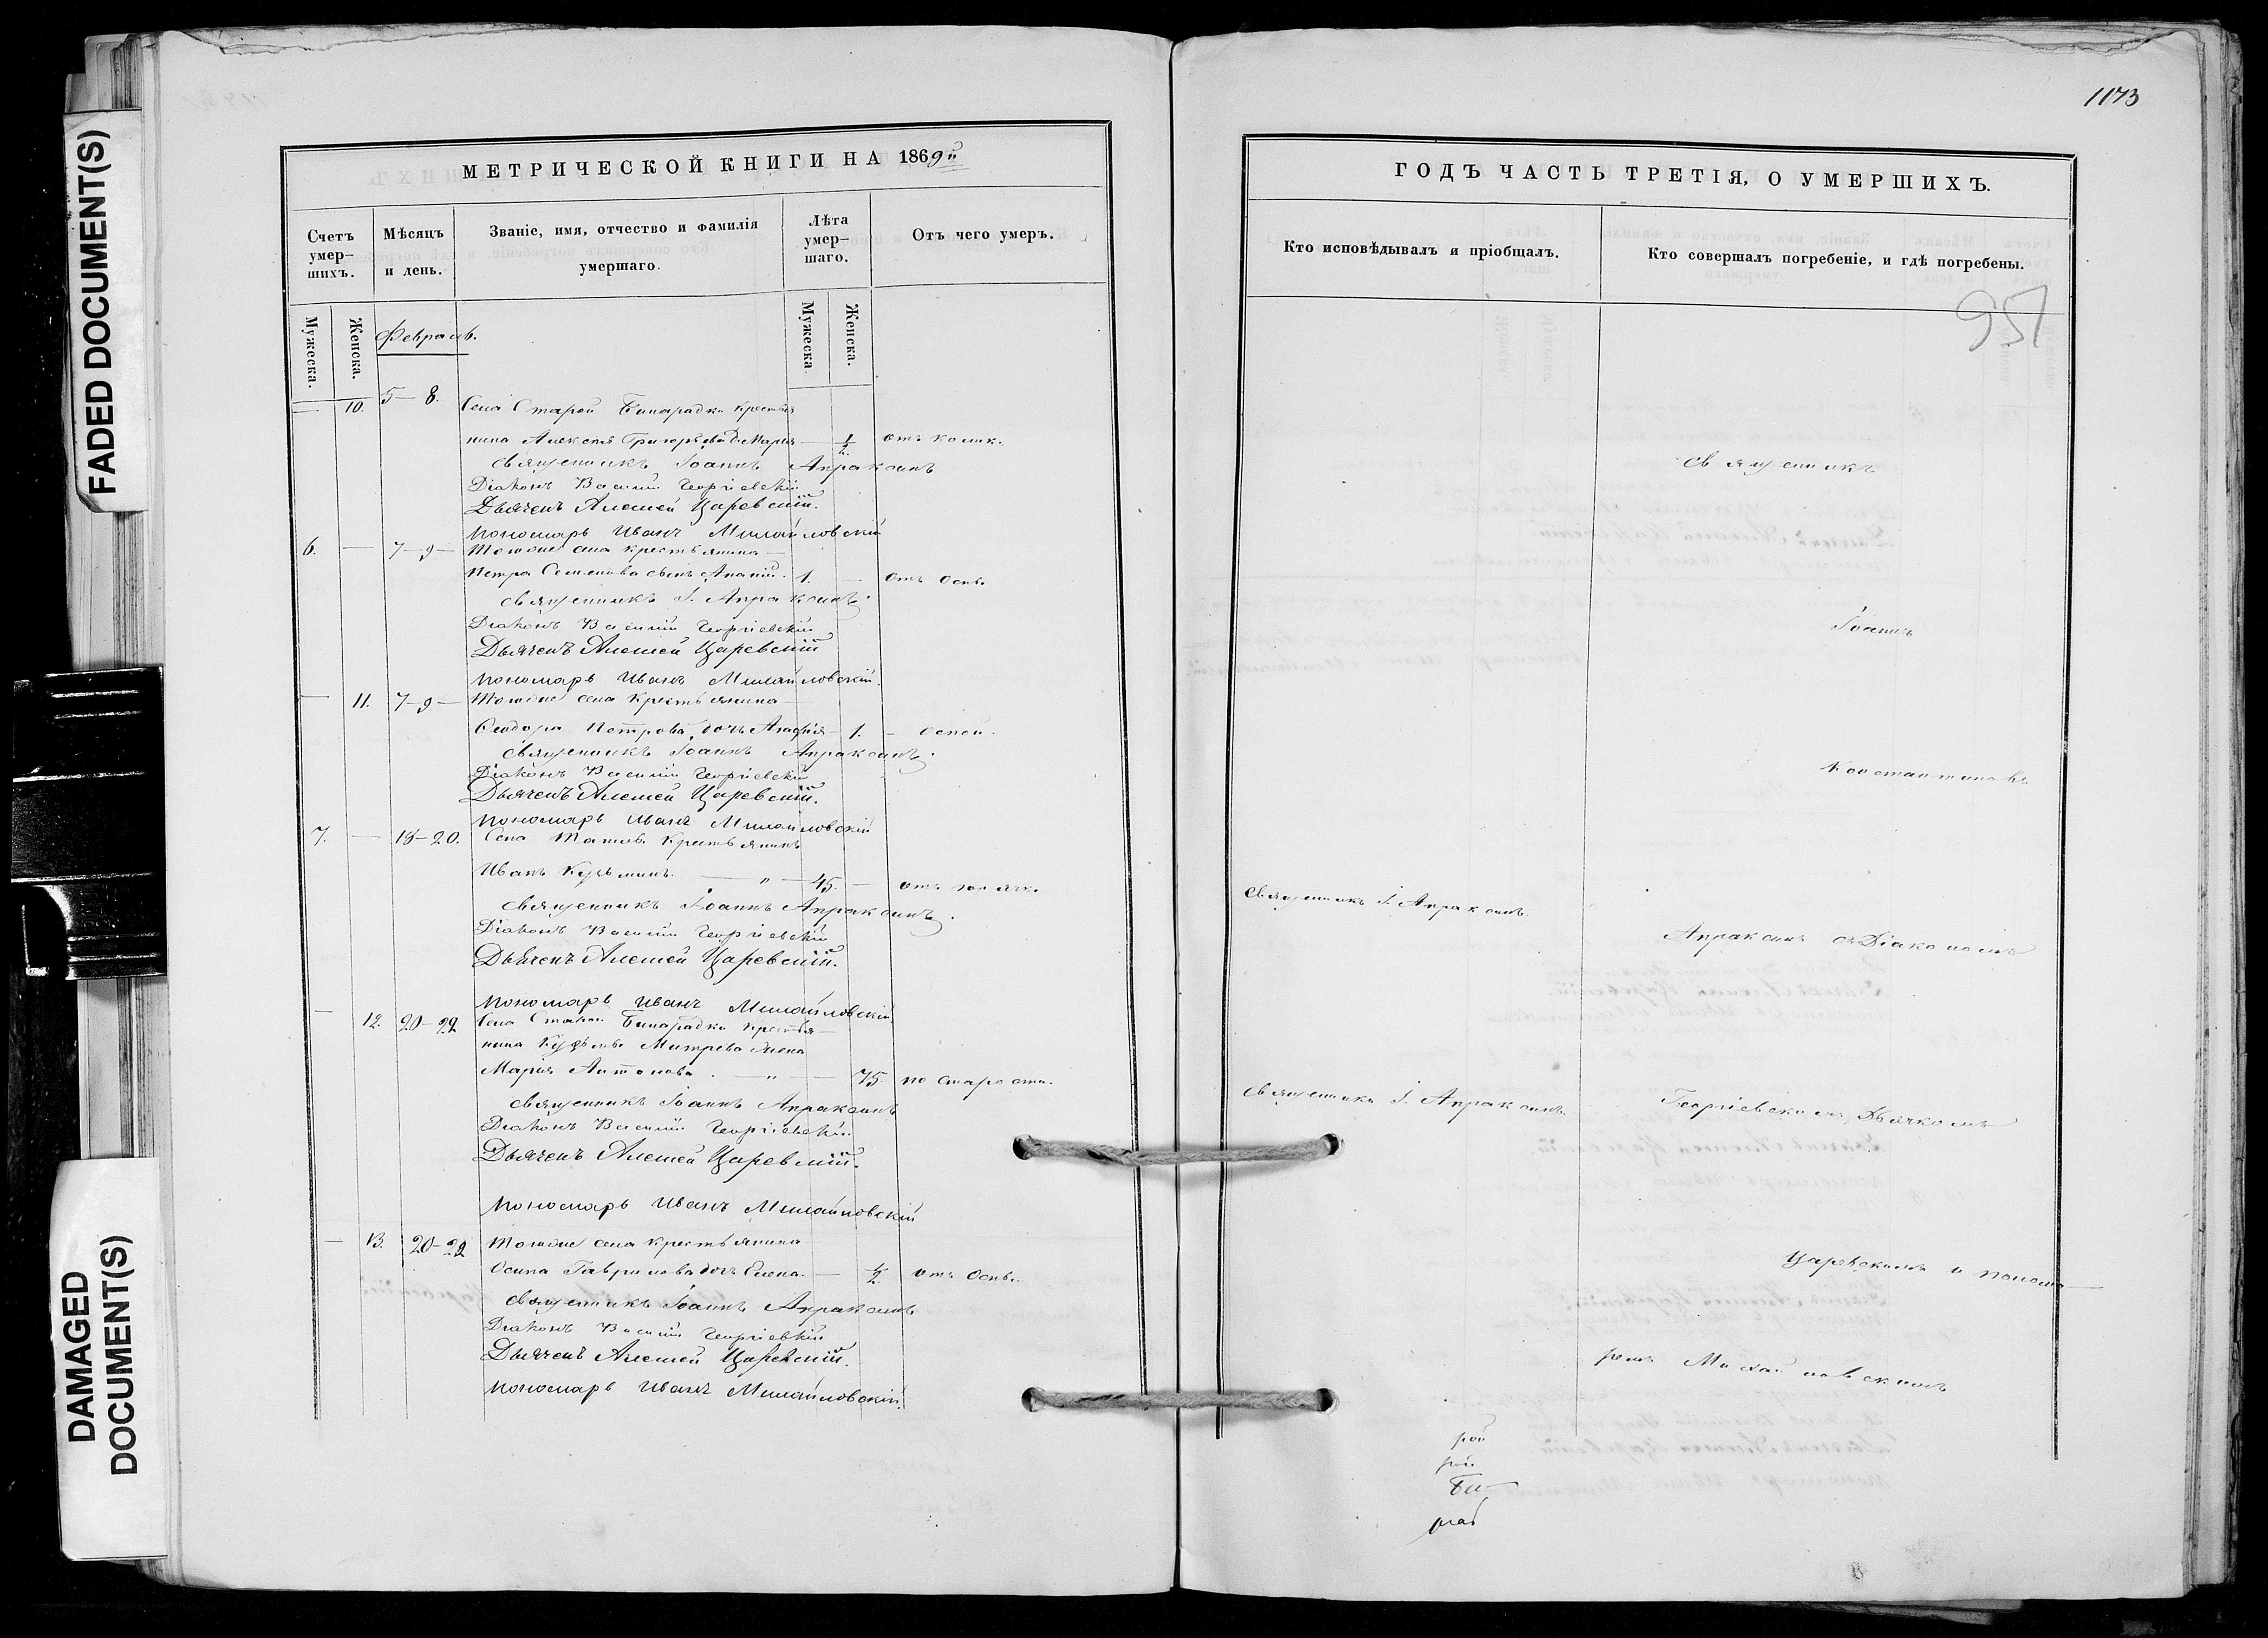 FADED DOCUMENT(S)
DAMAGED DOCUMENT(S)
МЕТРИЧЕСКОЙ КНИГИ НА 1869й
Счетъ умер-шихъ.
Мѣсяцъ и день.
Званіе, имя, отчество и фамилія умершаго.
Лѣта умер-шаго.
Отъ чего умеръ.
Мужеска.
Женска.
Февраль.
Мужеска
Женска.
— 10. 5–8. Села Старой Бинарадки крестья
нина Алексѣя Григорьева д. Марія — 1/2 отъ колик.
Священникъ Іоаннъ Апраксинъ
Діаконъ Василій Георгіевскій
Дьячекъ Алексей Царевскій.
Пономарь Иванъ Михайловскій
6. — 7–9 — Тогоже села крестьянина —
Петра Семенова сынъ Ананій. 1. — отъ оспы
Священникъ І. Апраксинъ
Діаконъ Василій Георгіевскій
Дьячекъ Алексей Царевскій
Пономарь Иванъ Михайловскій.
— 11. 7–9 — Тогоже села крестьянина —
Ѳеодора Петрова дочь — 1. – оспой.
Священникъ Іоаннъ Апраксинъ.
Діаконъ Василій Георгіевскій
Дьячекъ Алексей Царевскій.
Пономарь Иванъ Михайловскій
7. — 18–20. Села крестьянинъ
Иванъ Кузьминъ. — " — 45. — отъ горячк.
Священникъ Іоаннъ Апраксинъ.
Діаконъ Василій Георгіевскій
Дьячекъ Алексей Царевскій.
Пономарь Иванъ Михайловскій.
— 12. 20–22 Села Старой Бинарадки крестья—
нина Кузьмы Митрева жена
Марія Антонова. — " — 75. по старости.
Священникъ Іоаннъ Апраксинъ
Діаконъ Василій Георгіевскій
Дьячекъ Алексей Царевскій.
Пономарь Иванъ Михайловскій
— 13. 20–22 Тогоже села крестьянина
Осипа Гаврилова дочь Елена. — 1/2. отъ оспы.
Священникъ Іоаннъ Апраксинъ
Діаконъ Василій Георгіевскій
Дьячекъ Алексей Царевскій.
Пономарь Иванъ Михайловскій.
1173
ГОДЪ ЧАСТЬ ТРЕТІЯ, О УМЕРШИХЪ.
Кто исповѣдывалъ и пріобщалъ.
Кто совершалъ погребеніе, и гдѣ погребены.
951
Священникъ
Іоаннъ
Константиновъ
Священникъ І. Апраксинъ.
Апраксинъ съ Діакономъ
Священникъ І. Апраксинъ.
Георгіевскимъ, Дьячкомъ
Царевскимъ и понома—
ремъ Михайловскимъ
рой
рой
Би-
рад